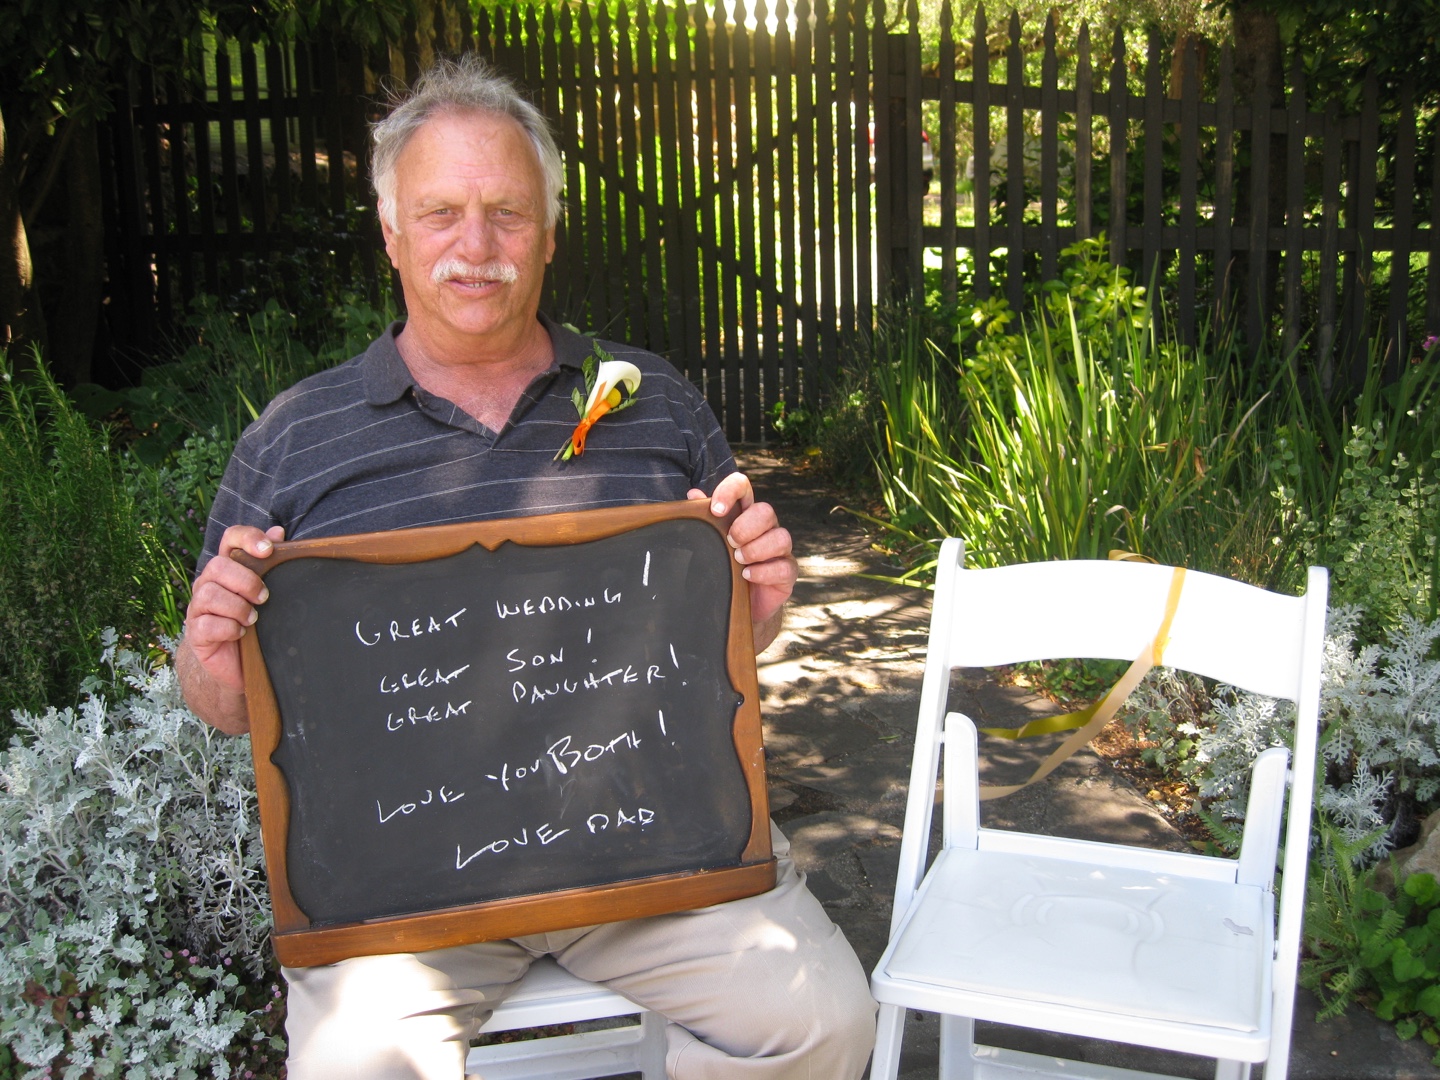 GREAT WEDDING!
GREAT SON!
GREAT DAUGHTER!
LOVE YOU BOTH!
LOVE DAD